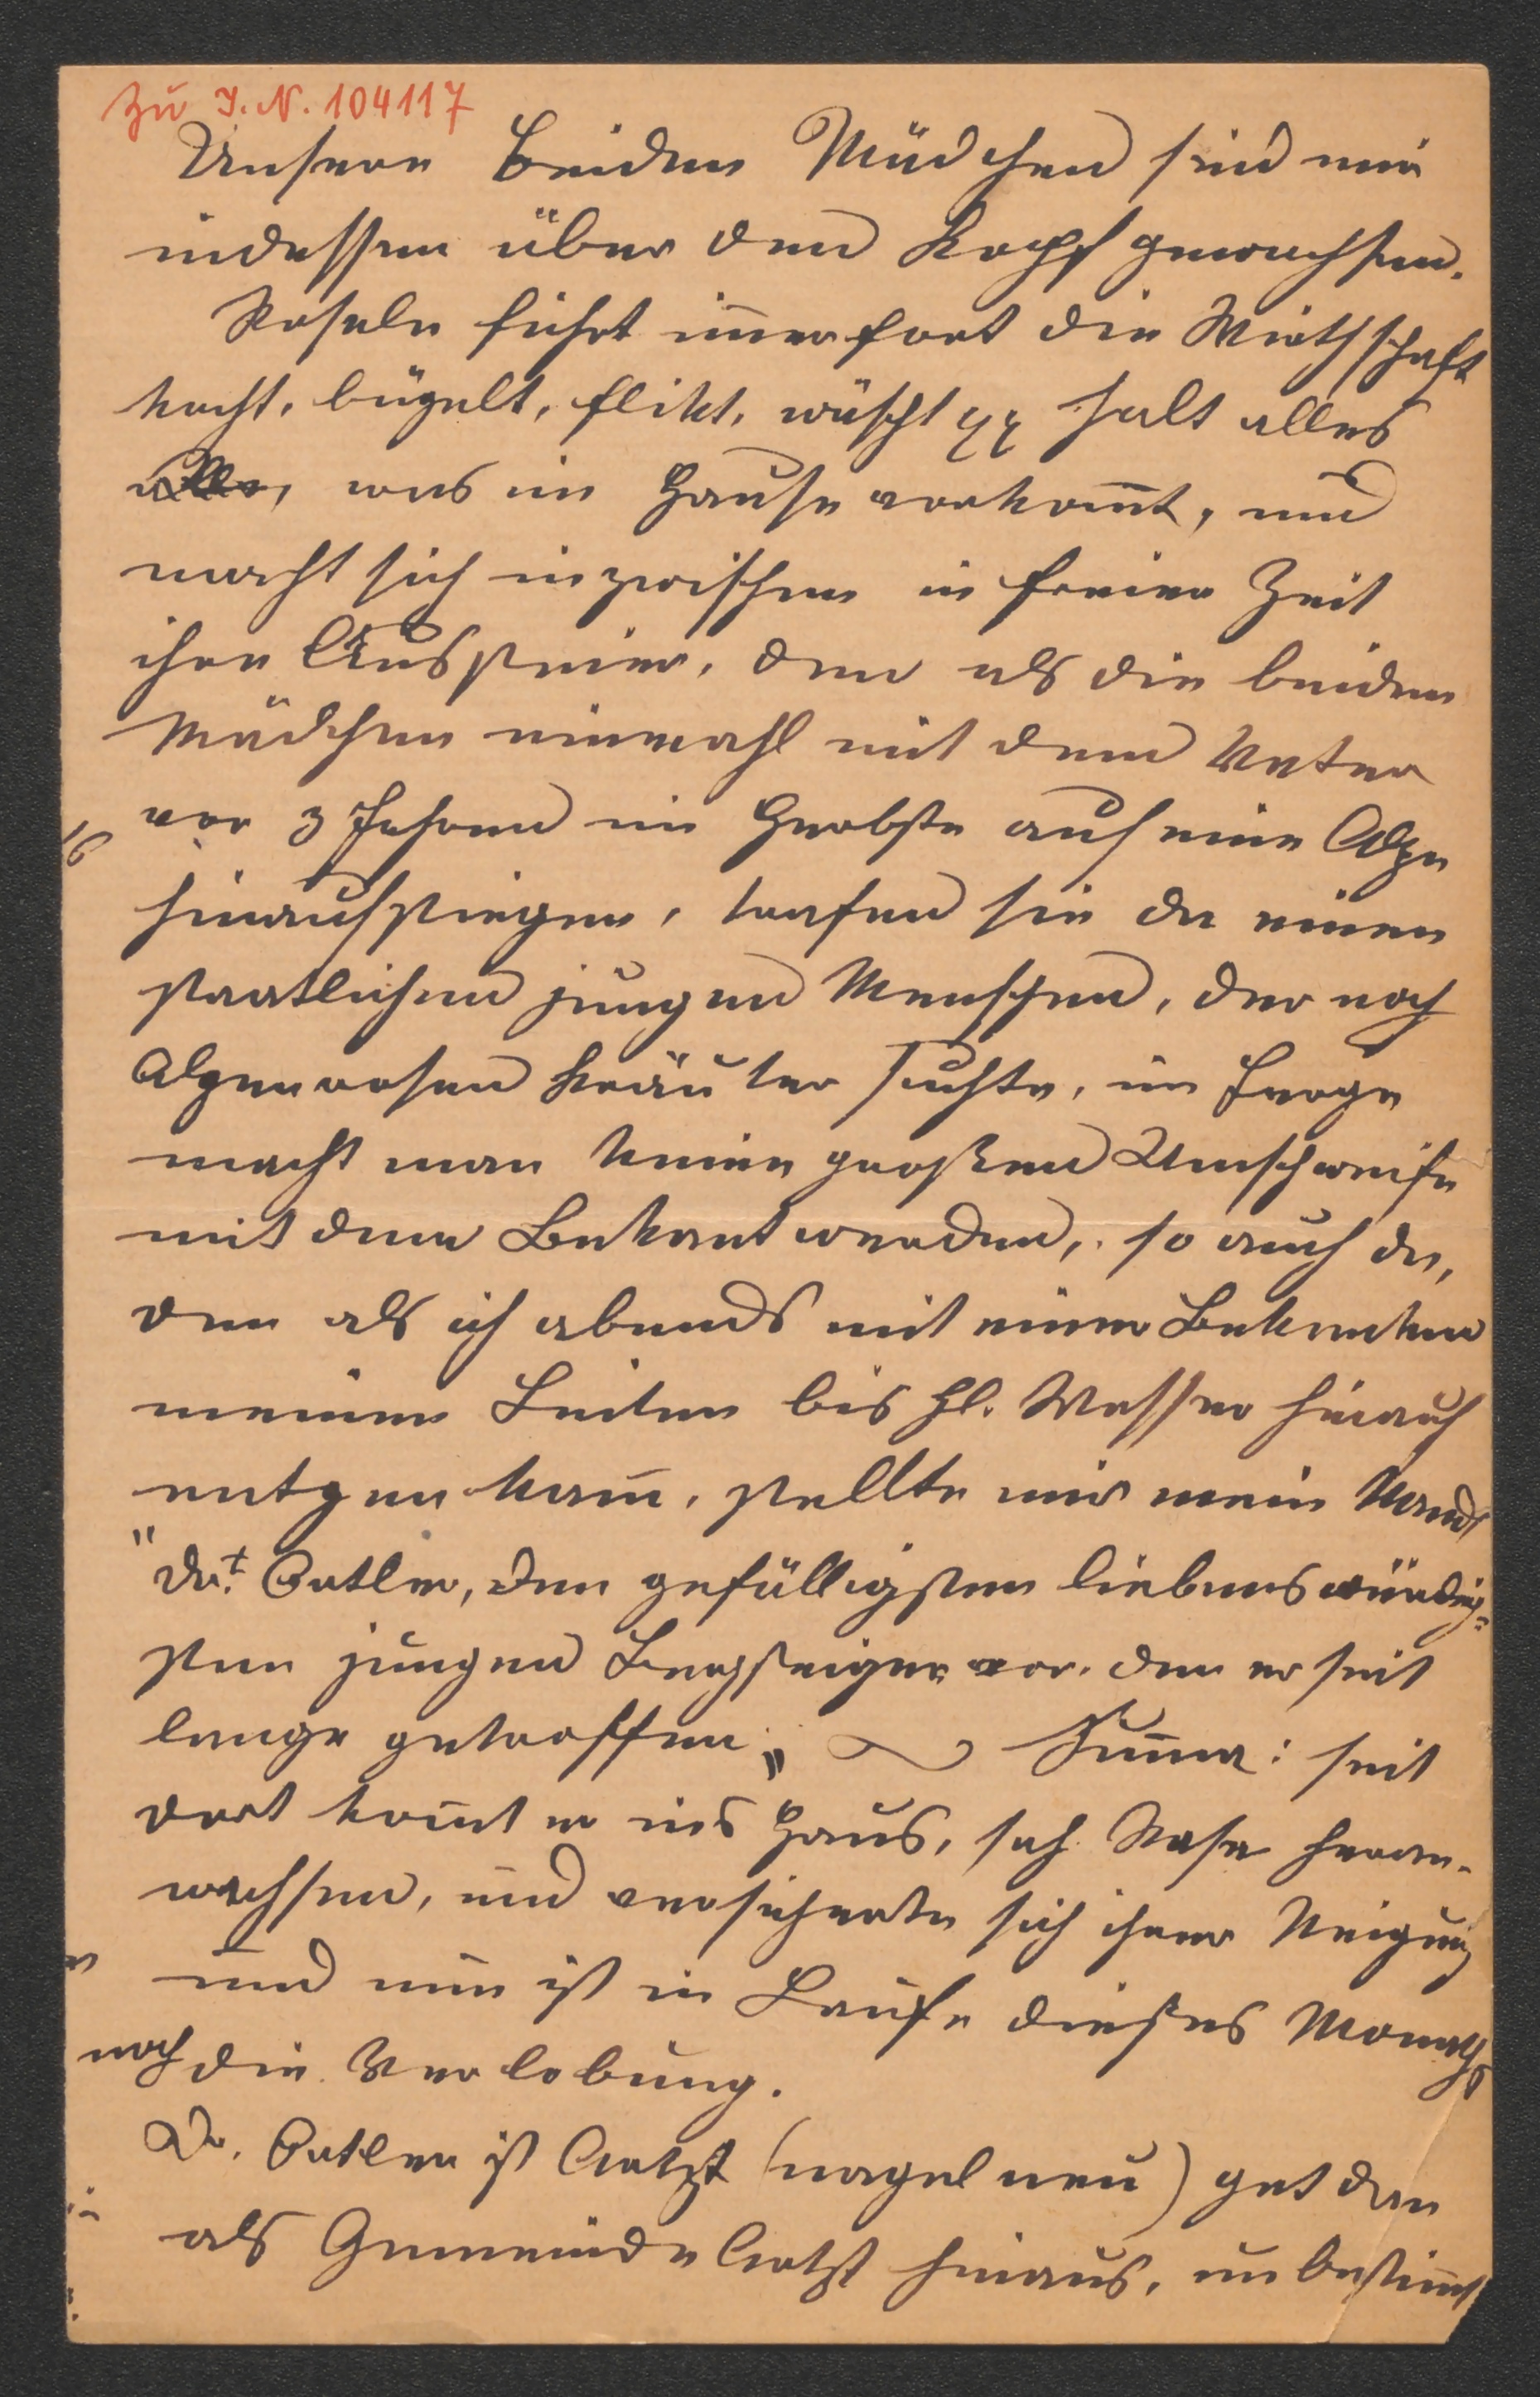 Zu I.N. 104117
Unsere beiden Mädchen sind mir
indessen über den Kopf gewachsen.
Rosele führt im̄erfort die Wirthschaft
kocht, bügelt, flikt, wäscht halt alles
was im Hause vorkom̄t, und
macht sich inzwischen in freier Zeit
ihre Aussteuer, den als die beiden
Mädchen einmahl mit dem Vater
vor 3 Jahren im Herbste auf eine Alpe
hinaufstiegen, trafen sie da einen
staatlichen jungen Menschen, der noch
Alpenrosen Kräuter suchte, im Berge
macht man keine großen Umschweife
mit dem Bekantwerden, so auch da,
den als ich abends mit einer Bekanten
meinen Leiten bis hl. Wasser hinauf
entgegen kam̄, stellte mir mein Mand
"Dr. Oatler, den gefälligsten liebenswürdig=
sten jungen Bergsteiger vor. den er seit
lange getroffen" ~ Sum̄a: seit
dort kom̄t er ins Haus, sah Rosa heran-
wachsen, und versicherte sich ihrer Neigung
und nun ist im Laufe dieses Monaths
noch die Verlobung.
Dr. Oatler ist Artzt (nagelneu) get dan
als Gemeinde Artzt hinaus, unbestim̄t